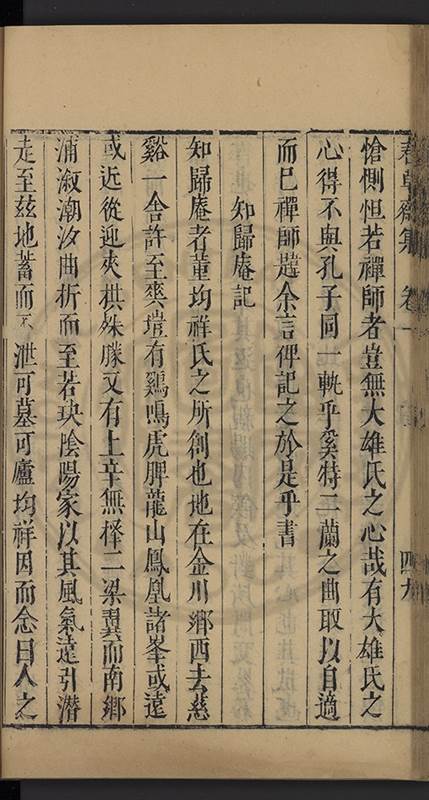 愴惻怛若禪師者豈無大雄氏之心哉有大雄氏之
心得不與孔子同一軌乎奚特二蘭之曲取以自適
而已禪師韙余言俾記之於是乎書
知歸庵記
知歸庵者董均祥氏之所創也地在金川鄉西去慈
谿一舍許至奘𡏖有鷄鳴虎脾龍山鳳凰諸峯或遠
或近從迎夾棋殊勝又有上辛無檡二梁翼而南鄉
浦溆潮汐曲折而至若玦陰陽家以其風氣遠引潛
走至茲地蓄而不泄可墓可廬均祥因而念曰人之
卷一
四九